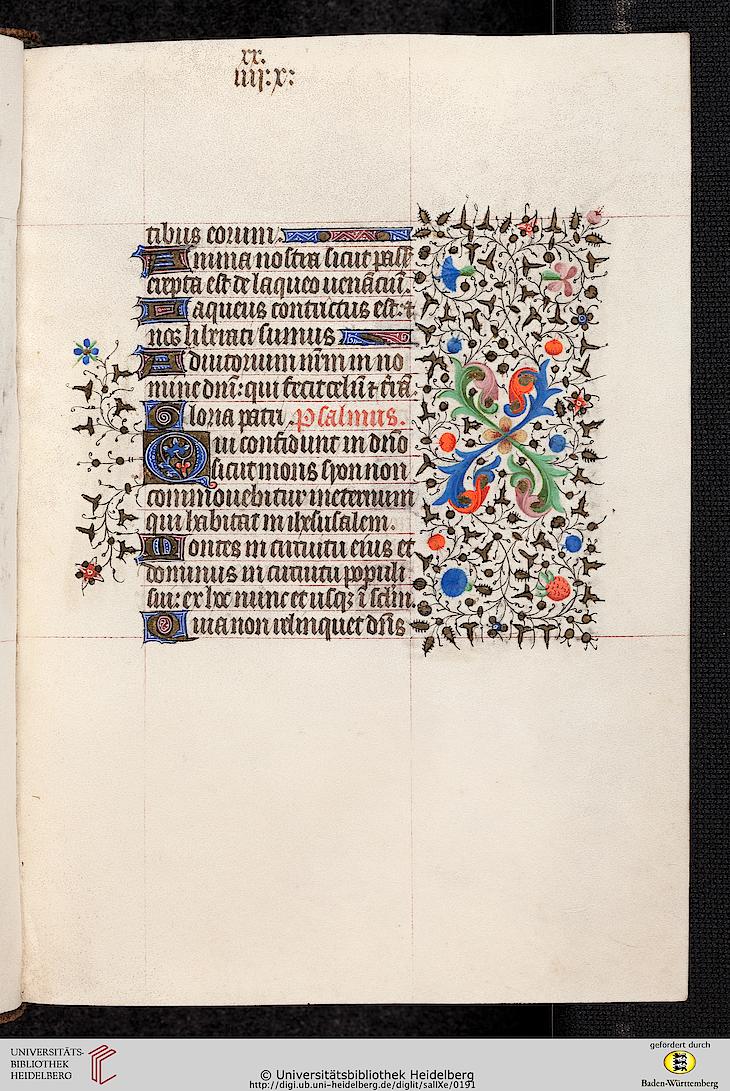 xx.
iiij:x:
tibus eorum.
Anima nostra sicut pass
erepta est de laqueo uenãciũ.
Laqueus contritus est: ⁊
nos liberati sumus
Adiutorium nr̃m in no
mine dnĩ: qui fecit celũ ⁊ tr̃ã.
Gloria patri. Psalmus.
Qui confidunt in dño
sicut mons syon non
commouebitur in eternum
qui habitat in iherusalem.
Montes in circuitu eius et
dominus in circuitu populi
sui: ex hoc nunc et usqȝ ĩ sclm̃
Quia non relinquet dñs
UNIVERSITÄTS-
BIBLIOTHEK
HEIDELBERG
© Universitätsbibliothek Heidelberg
http://digi.ub.uni-heidelberg.de/diglit/sallXe/0191
gefördert durch
Baden-Württemberg